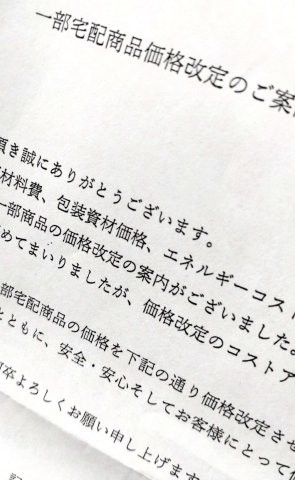 一部宅配商品価格改定のご案
頂き誠にありがとうございます。
材料費、包装資材価格、エネルギーコスト
一部商品の価格改定の案内がございました。
めてまいりましたが、価格改定のコストア
部宅配商品の価格を下記の通り価格改定させ
とともに、安全・安心そしてお客様にとって価
何卒よろしくお願い申し上げます
記